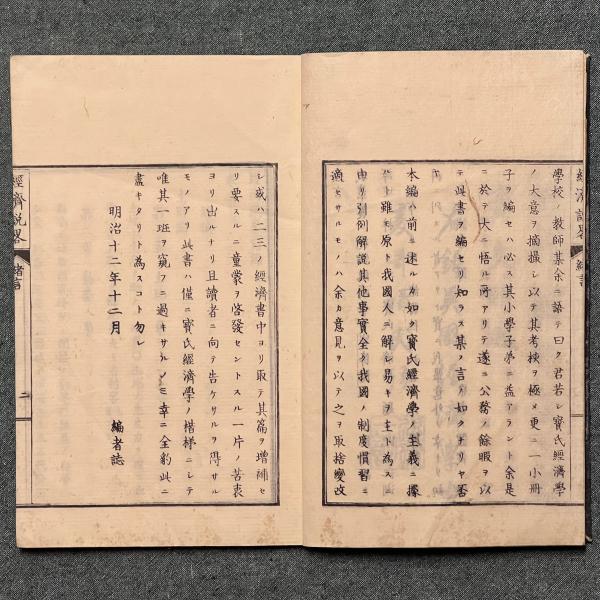 學校ノ教師某余ニ語テ曰ク君若シ寳氏經濟學
ノ大意ヲ摘撮シ以テ其考桉ヲ極メ更ニ一小冊
子ヲ編セハ必ス其小學子弟ニ益アラント余是
ニ於テ大ニ悟ル所アリテ遂ニ公務ノ餘暇ヲ以
テ此書ヲ編セリ知ラス某ノ言ノ如クナリヤ否
本編ハ前ニ述ルカ如ク寳氏經濟學ノ主義ニ據
ルト雖モ原ト我國人ニ解シ易キヲ主ト為スニ
由リ引例解説其他事實全ク我國ノ制度慣習ニ
適セサルモノハ余カ意見ヲ以テ之ヲ取捨變改
シ或ハ二三ノ經濟書中ヨリ取テ其篇ヲ増補セ
リ要スルニ童蒙ヲ啓發セントスル一片ノ苦衷
ヨリ出ルナリ且讀者ニ向テ告ケサルヲ得サル
モノアリ此書ハ僅ニ寳氏經濟學ノ楷梯ニシテ
唯其一班ヲ窺フニ過キサルノミ幸ニ全豹此ニ
盡キタリト為スコト勿レ
明治十二年十二月
編者誌
經濟説畧
緒言
二